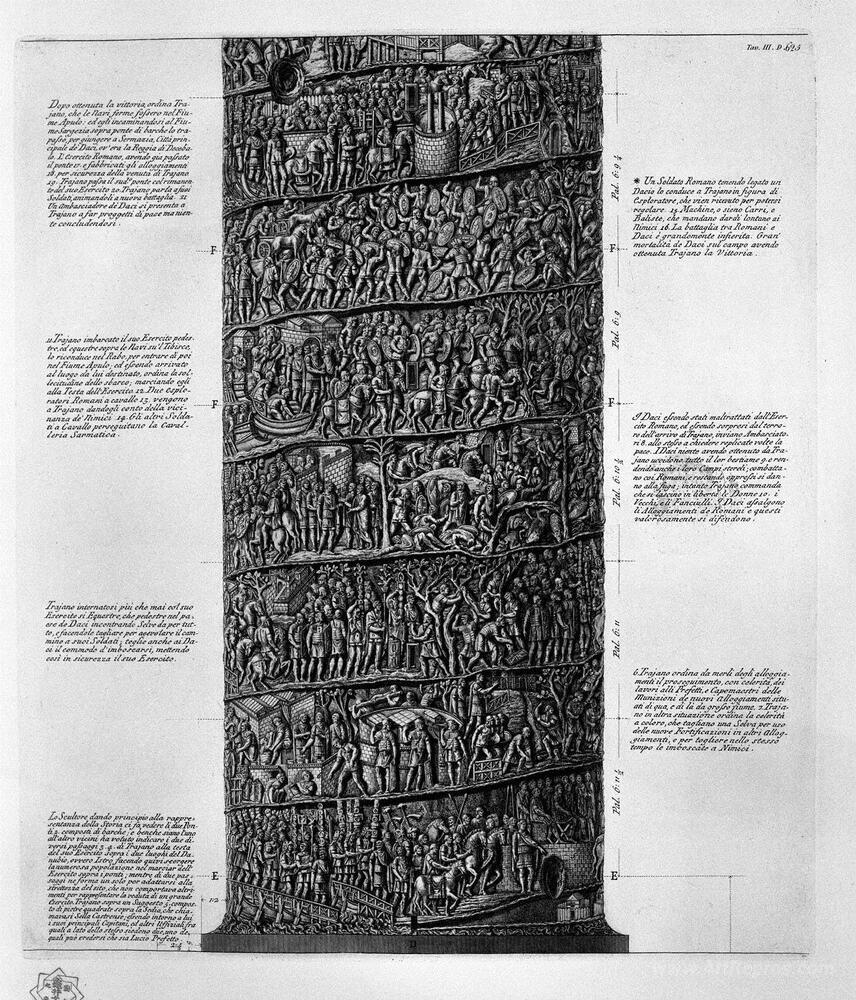 Tav. III. D
Dopo ottenuta la vittoria, ordina Tra-
jano, che le Navi ferme fossero nel Fiu-
me Apulo: ed egli incaminandosi al Fiu-
me Sargezia sopra ponte di barche lo tra-
passò, per giungere a Sermazia, Città prin-
cipale de' Daci, ov'era la Reggia di Deceba-
lo. L'Esercito Romano, avendo già passato
il ponte 17. e fabbricati gli alloggiamenti
18. per sicurezza della venuta di Trajano
19. Trajano passa il sudº. ponte col rimanen-
te del suo Esercito 20. Trajano parla a suoi
Soldati, animandoli a nuova battaglia. 21
Un Ambasciadore de' Daci si presenta a
Trajano a far proggetti di pace ma nien-
te concludendosi.
* Un Soldato Romano tenendo legato un
Dacio lo conduce a Trajano in figura di
Esploratore, che vien ricevuto per potersi
regolare. 15. Machine, o sieno Carri, e
Baliste, che mandano dardi lontano ai
Nimici 16. La battaglia tra Romani e
Daci è grandemente infierita. Gran'
mortalità de Daci sul campo avendo
ottenuta Trajano la Vittoria.
F
F
11. Trajano imbarcato il suo Esercito pedes-
tre, ed equestre sopra le Navi su'l Tibisco,
lo riconduce nel Rabo, per entrare di poi
nel Fiume Apulo; ed essendo arrivato
al luogo da lui destinato, ordina la sol-
lecitudine dello sbarco; marciando egli
alla Testa dell'Esercito 12. Due Esplo-
ratori Romani a cavallo 13. vengono
a Trajano dandogli conto della vici-
nanza de' Nimici 14. Gli altri Solda-
ti a Cavallo perseguitano la Caval-
leria Sarmatica.
Pal. 6:9
F
F
I Daci essendo stati maltrattati dall'Eser-
cito Romano, ed essendo sorpresi dal terro-
re dell'arrivo di Trajano, inviano Ambasciato-
ri 8. allo stesso a chiedere replicate volte la
pace. I Daci niente avendo ottenuto da Tra-
jano uccidono tutto il lor bestiame 9. e ren-
dendo anche i loro Campi sterili; combatta-
no coi Romani, e restando oppressi si dan-
no alla fuga; intanto Trajano commanda
che si lascino in libertà le Donne 10. i
Vecchi, e li Fanciulli. I Daci assalgono
li Alloggiamenti de Romani e questi
valorosamente si difendono.
Pal. 6:10½
Trajano internatosi più che mai col suo
Esercito sì Equestre, che pedestre nel pa-
ese de Daci incontrando Selve da per tut-
to, e facendole tagliare per agevolare il cam-
mino a suoi Soldati; toglie anche ai Da-
ci il commodo d'imboscarsi, mettendo
così in sicurezza il suo Esercito.
Pal. 6:11
6. Trajano ordina da merli degli alloggia-
menti il proseguimento, con celerità, dei
lavori alli Prefetti, e Capomastri delle
Munizioni de nuovi Alloggiamenti situ-
ati di quà, e di là da grosso fiume. 7. Traja-
no in altra situazione ordina la celerità
a coloro, che tagliano una Selva per uso
delle nuove Fortificazioni in altri Allog-
giamenti, e per togliere nello stesso
tempo le imboscate a Nimici.
Pal. 6:11½
Lo Scultore dando principio alla rappre-
sentanza della Storia ci fa vedere li due Pon-
ti 2. composti di barche; e benche siano l'uno
all'altro vicini ha voluto indicare i due di-
versi passaggi 3. 4. di Trajano alla testa
del suo Esercito sopra i due luoghi del Da-
nubio, ovvero Istro, facendo quivi scorgere
la numerosa popolazione nel marciar dell'
Esercito sopra i ponti; mentre di due pas-
saggi ne forma un solo per adattarsi alla
strettezza del sito, che non comportava altri-
menti per rappresentare la veduta di un grande
Esercito. Trajano sopra un Suggesto 5. compos-
to di pietre quadrate sopra la Sedia, che chia-
mavasi Sella Castrense, essendo intorno a lui
i suoi principali Capitani, ed altri Uffiziali fra
quali a lato dello stesso siedono due, uno de,
quali può credersi che sia Lucio Prefetto.
E
E
D